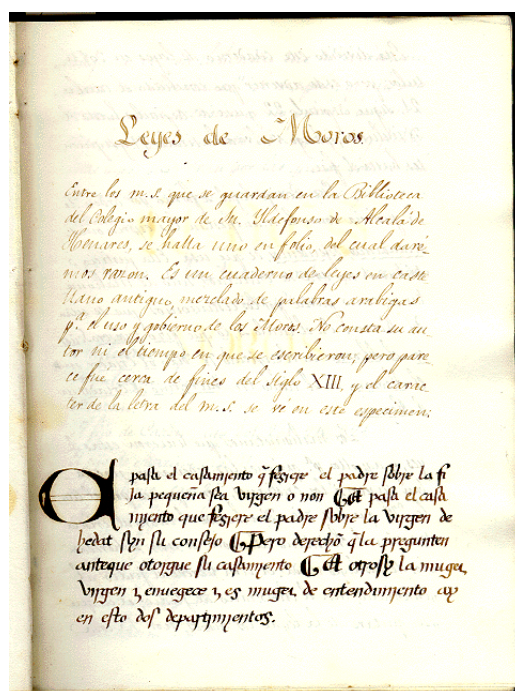 Leyes de Moros.
Entre los m.s. que se guardan en la Biblioteca
del Colegio mayor de Sn. Ildefonso de Alcalá de
Henares, se halla uno en folio, del cual daré-
mos razon. Es un cuaderno de leyes en caste
llano antiguo, mezclado de palabras arabigas
pa. el uso y gobierno de los Moros. No consta su au-
tor ni el tiempo en que se escribieron; pero pare
ce fue cerca de fines del siglo XIII, y el carac-
ter de la letra del m.s. se vé en este especimen:
pasa el casamiento q̃ fesiere el padre sobre la fi
ja pequeña sea virgen o non Et pasa el casa
miento que fesiere el padre sobre la virgen de
hedat syn su consejo Pero derecho q̃ la pregunten
anteque otorgue su casamyento Et otrosy la muger
virgen τ enuegece τ es muger de entendimiento ay
en esto dos departymientos.